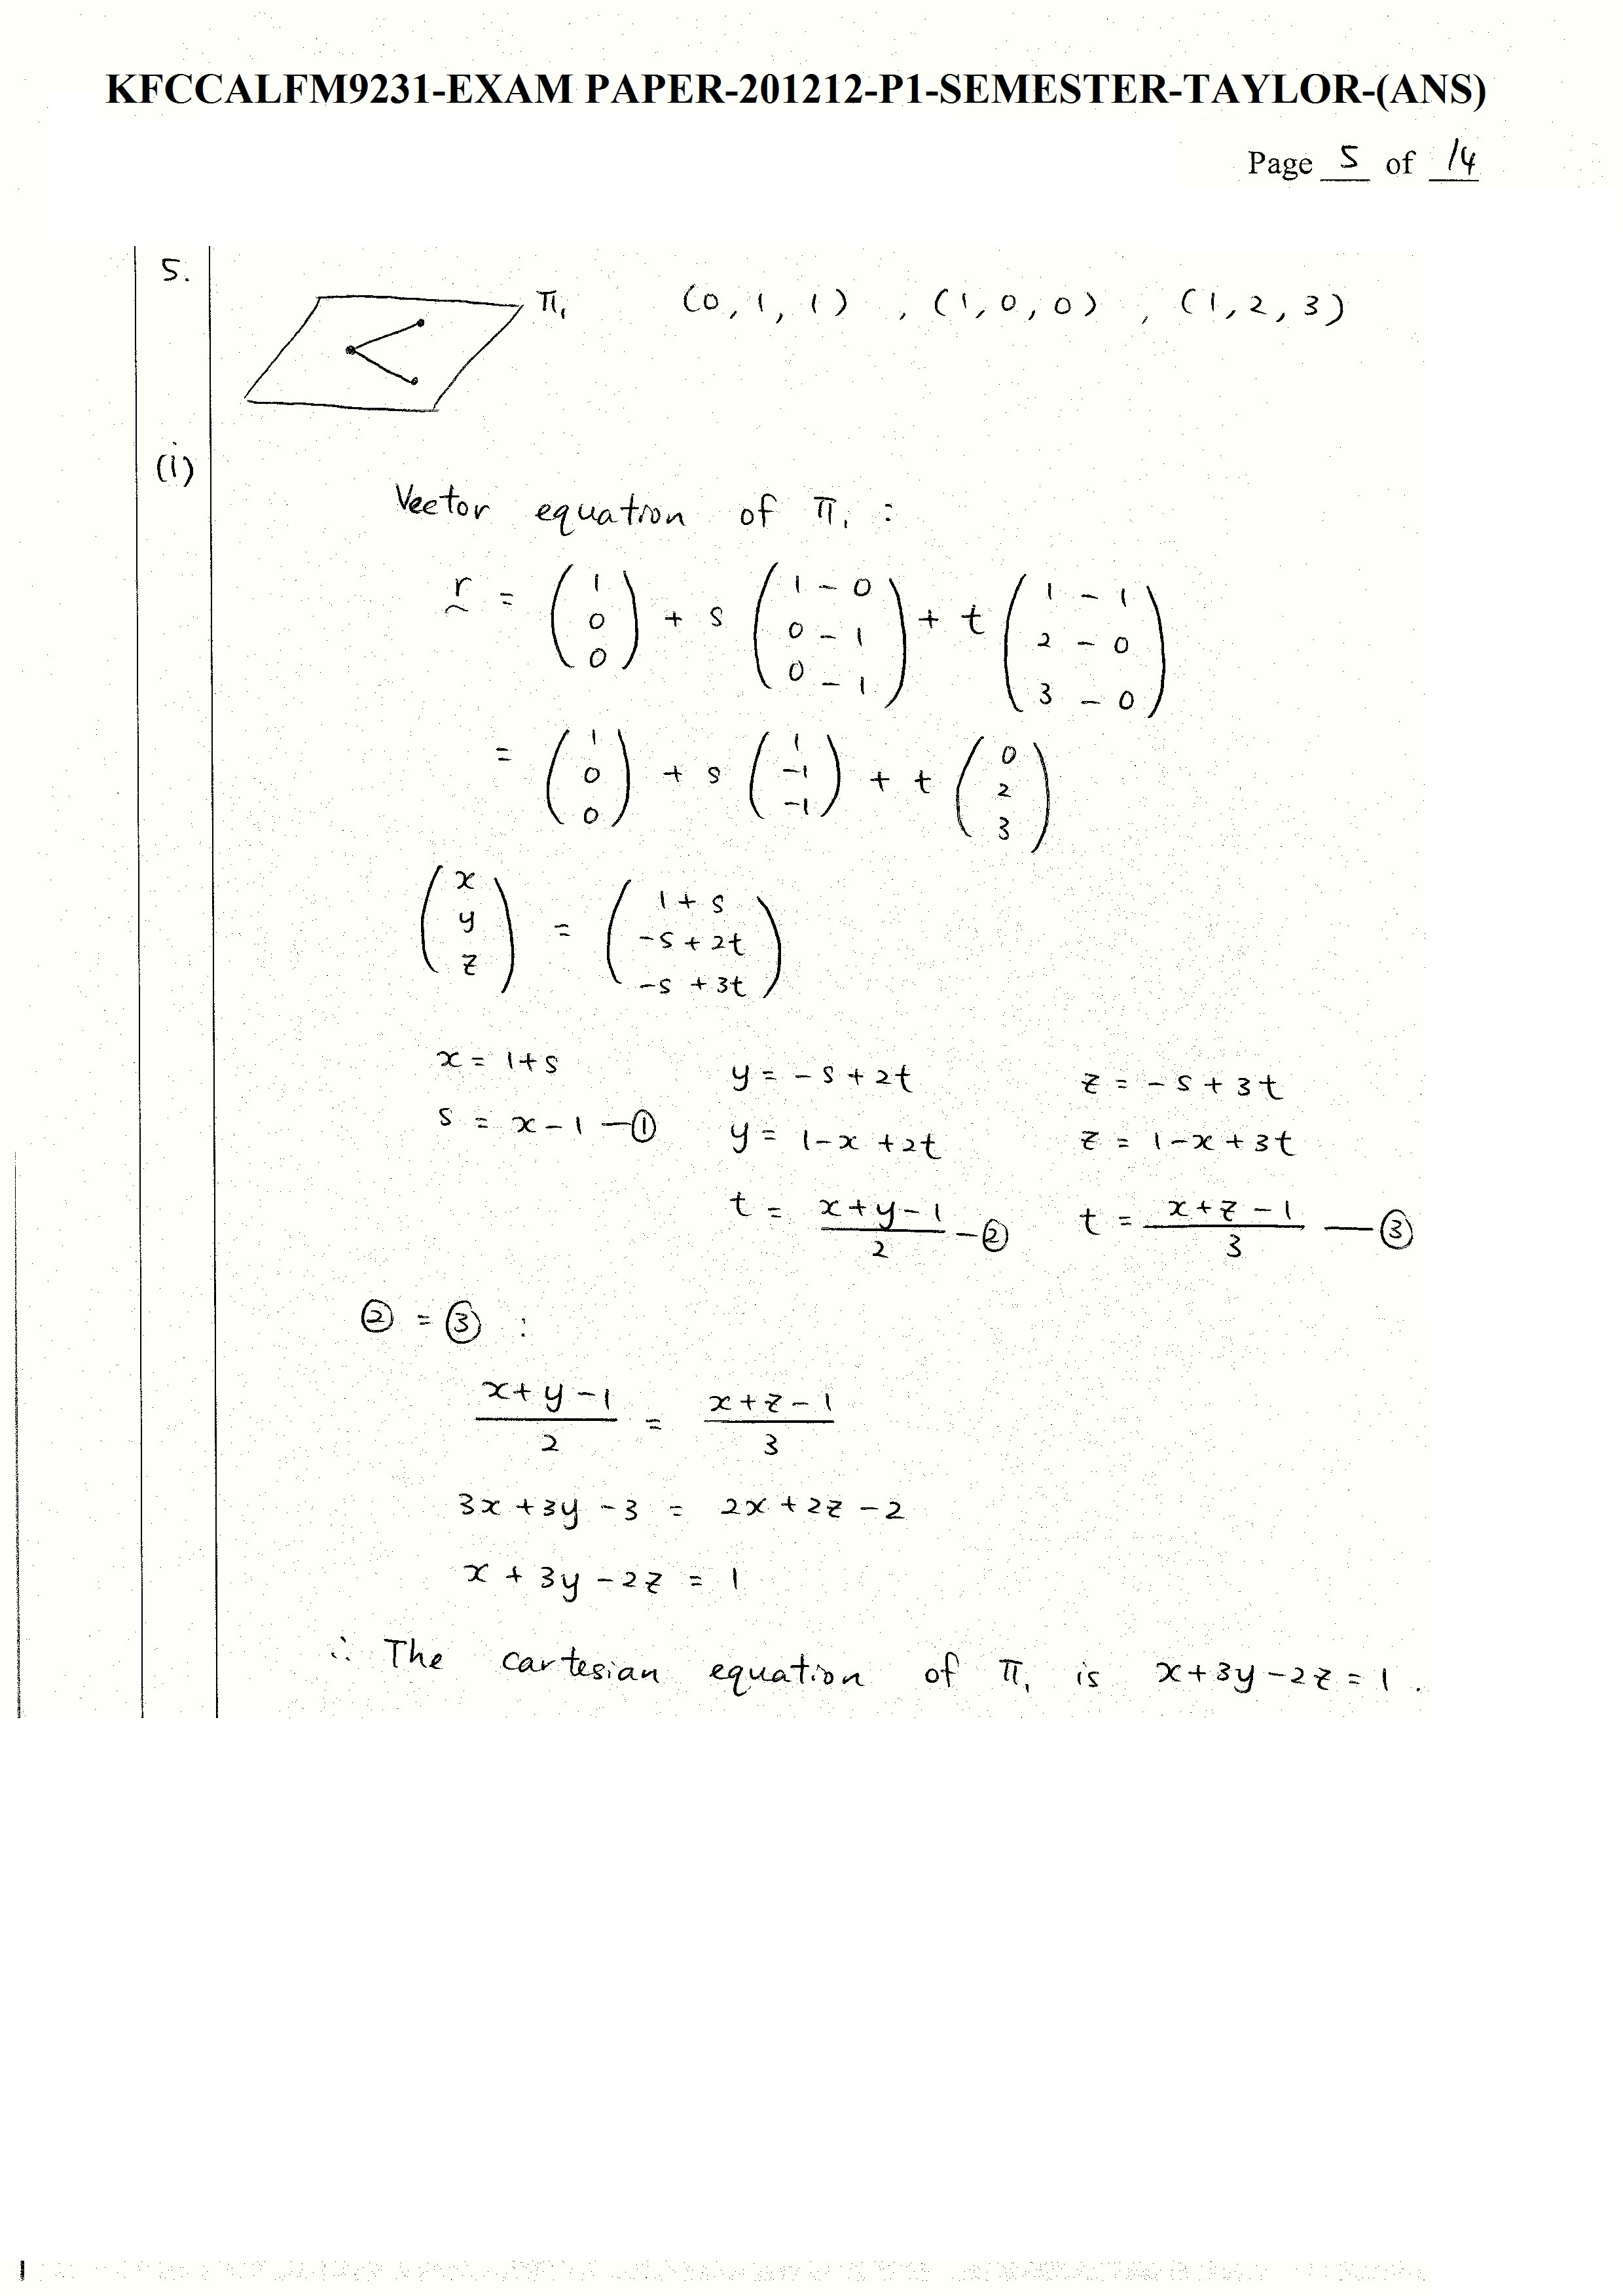 KFCCALFM9231-EXAM PAPER-201212-P1-SEMESTER-TAYLOR-(ANS)
Page 5 of 14
5.
π₁ (0, 1, 1) , (1, 0, 0) , (1, 2, 3)
(i)
Vector equation of π₁ :
r = (1 0 0) + s (1-0 0-1 0-1) + t (1-1 2-0 3-0)
= (1 0 0) + s (1 -1 -1) + t (0 2 3)
(x y z) = (1+s -s+2t -s+3t)
x = 1+s y = -s+2t z = -s+3t
s = x-1 —① y = 1-x+2t z = 1-x+3t
t = (x+y-1)/2 —② t = (x+z-1)/3 —③
② = ③ :
(x+y-1)/2 = (x+z-1)/3
3x+3y-3 = 2x+2z-2
x+3y-2z = 1
∴ The cartesian equation of π₁ is x+3y-2z=1.